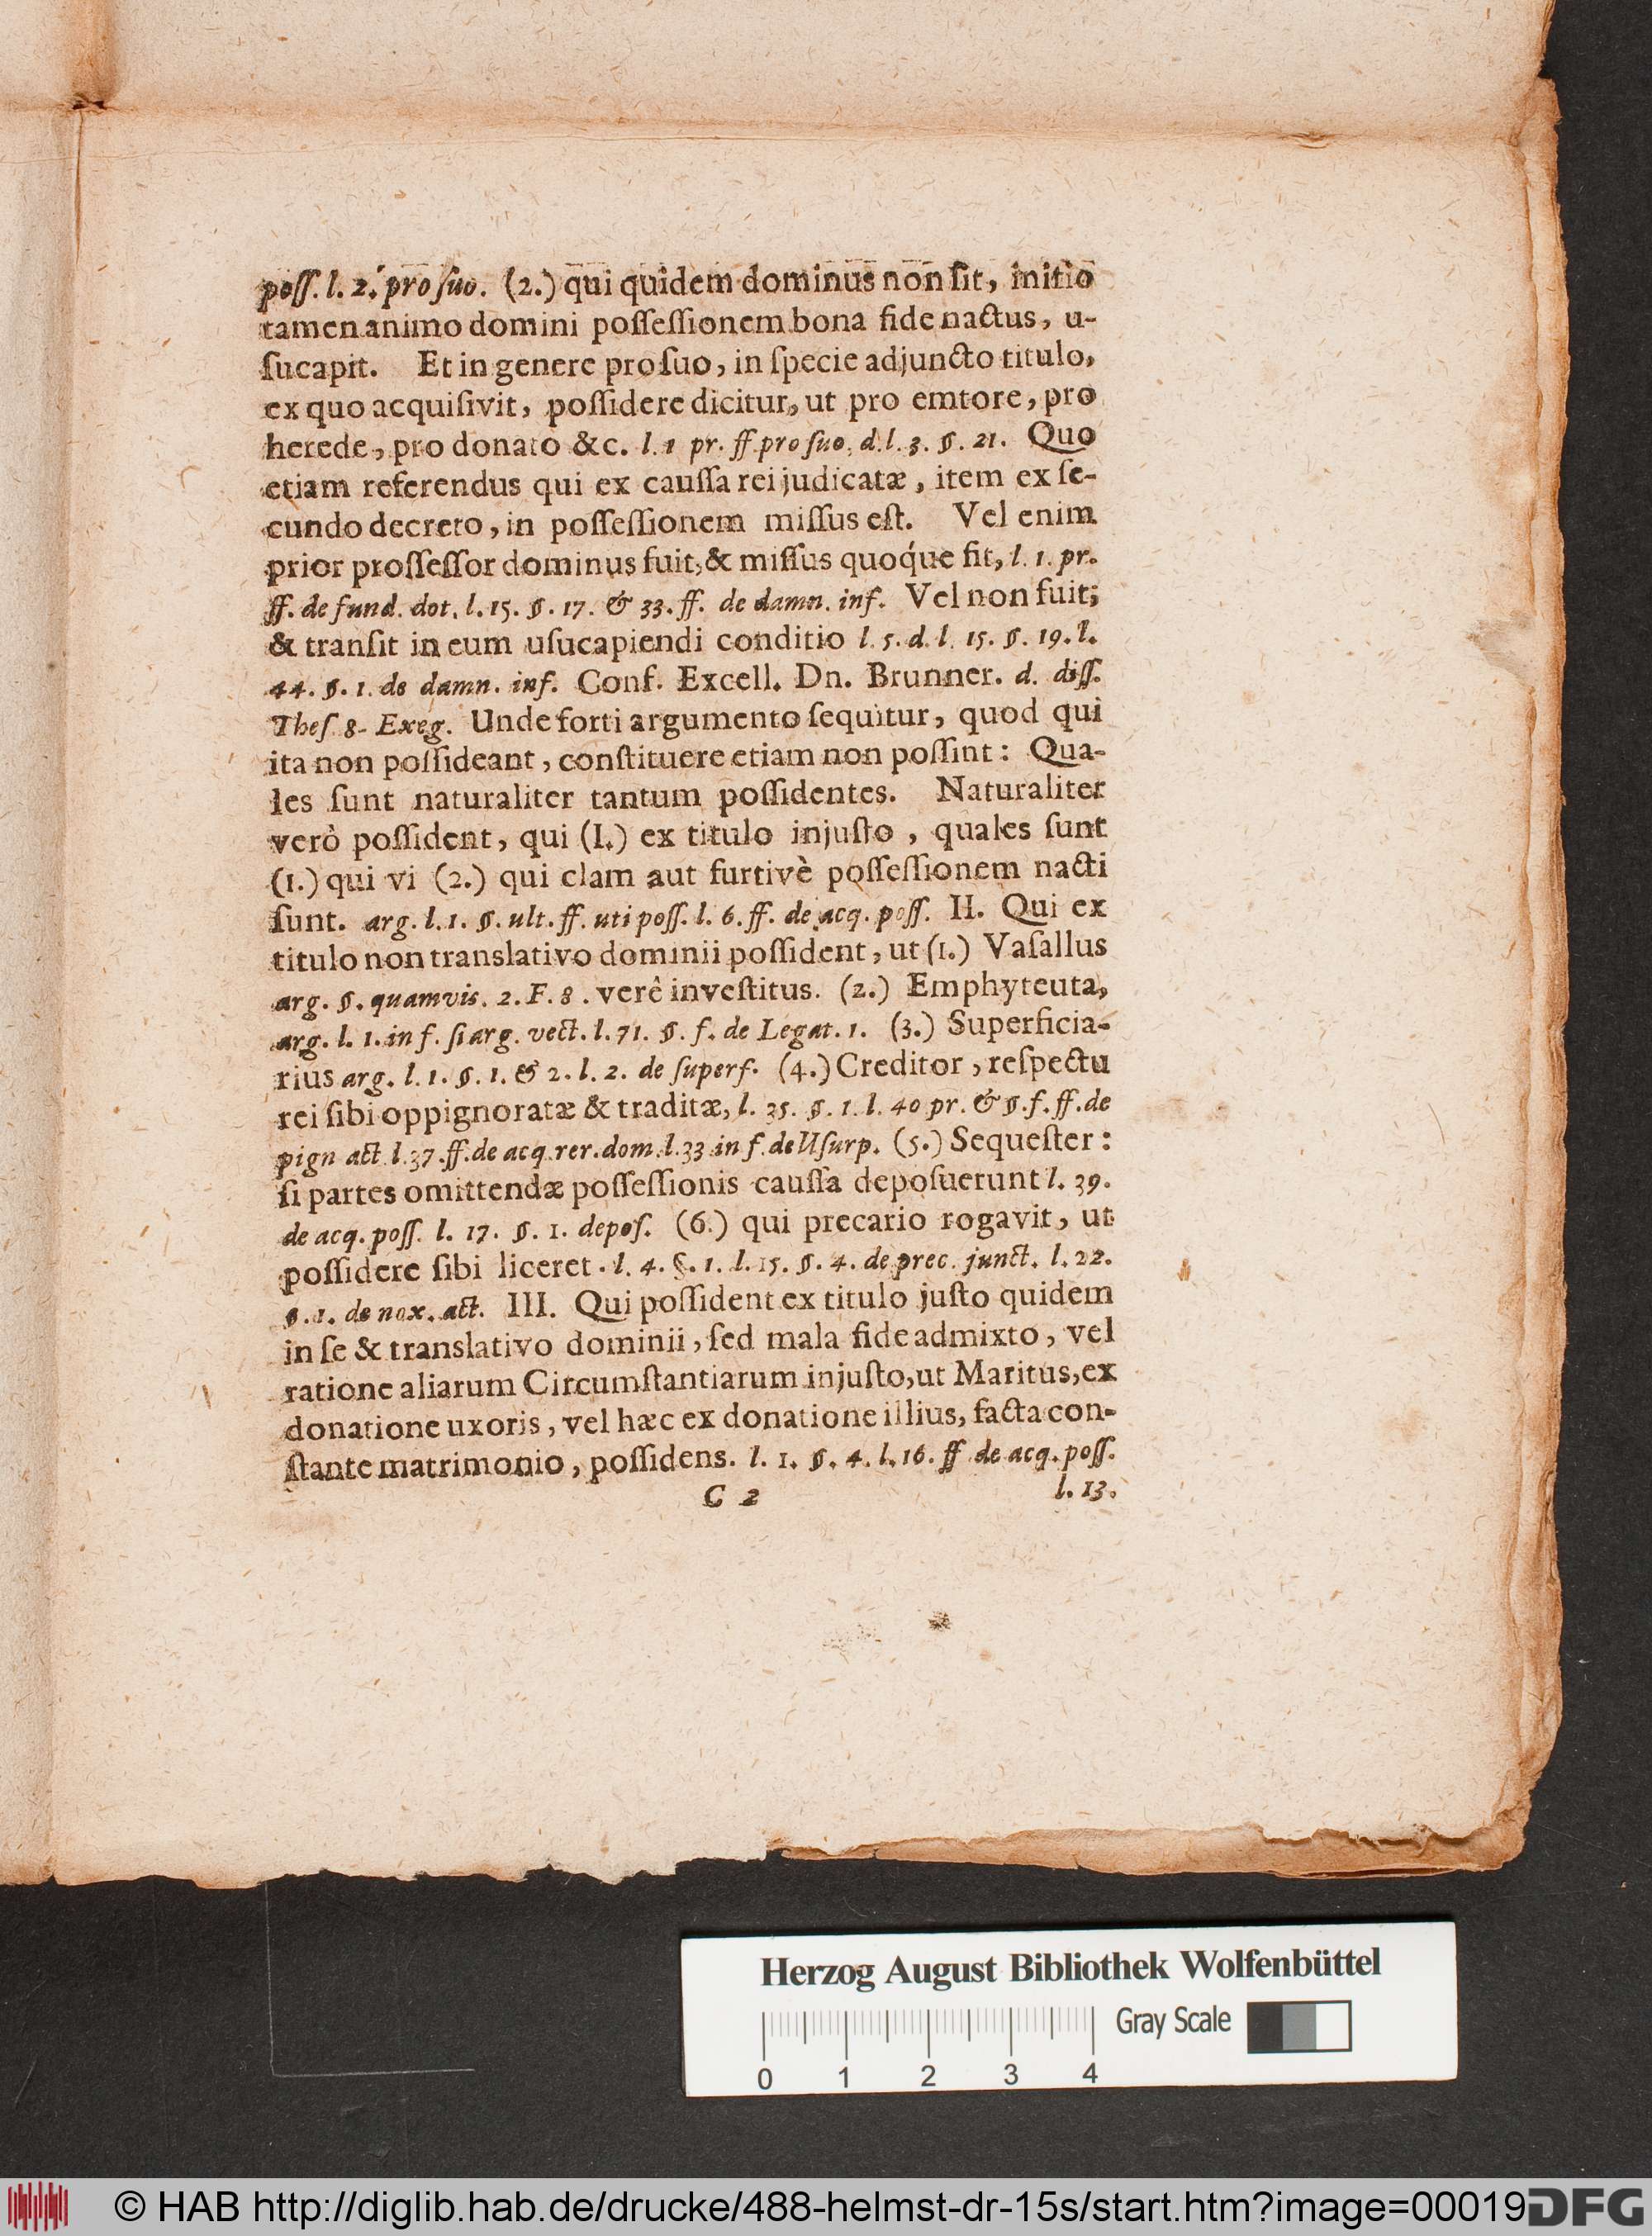 poſſ. l. 2. pro ſuo. (2.) qui quidem dominus non ſit, initio
tamen animo domini poſſeſſionem bona fide nactus, u-
ſucapit. Et in genere pro ſuo, in ſpecie adjuncto titulo,
ex quo acquiſivit, poſſidere dicitur, ut pro emtore, pro
herede, pro donato &c. l. 1 pr. ff pro ſuo. d. l. 3. §. 21. Quo
etiam referendus qui ex cauſſa rei judicatæ, item ex ſe-
cundo decreto, in poſſeſſionem miſſus eſt. Vel enim
prior proſſeſſor dominus fuit, & miſſus quoq́ue fit, l. 1. pr.
ff. de fund. dot. l. 15. §. 17. & 33. ff. de damn. inf. Vel non fuit;
& tranſit in eum uſucapiendi conditio l. 5. d. l. 15. §. 19. l.
44. §. 1. de damn. inf. Conf. Excell. Dn. Brunner. d. diſſ.
Theſ 8- Exeg. Unde forti argumento ſequitur, quod qui
ita non poſſideant, conſtituere etiam non poſſint: Qua-
les ſunt naturaliter tantum poſſidentes. Naturaliter
verò poſſident, qui (I.) ex titulo injuſto, quales ſunt
(1.) qui vi (2.) qui clam aut furtivè poſſeſſionem nacti
ſunt. arg. l. 1. §. ult. ff. uti poſſ. l. 6. ff. de acq. poſſ. II. Qui ex
titulo non translativo dominii poſſident, ut (1.) Vaſallus
arg. §. quamvis. 2. F. 8. verê inveſtitus. (2.) Emphyteuta,
arg. l. 1. in f. ſi arg. vect. l. 71. §. f. de Legat. 1. (3.) Superficia-
rius arg. l. 1. §. 1. & 2. l. 2. de ſuperf. (4.) Creditor, reſpectu
rei ſibi oppignoratæ & traditæ, l. 35. §. 1. l. 40 pr. & §. f. ff. de
pign act l. 37. ff. de acq rer. dom. l. 33 in f. de Uſurp. (5.) Sequeſter:
ſi partes omittendæ poſſeſſionis cauſſa depoſuerunt l. 39.
de acq. poſſ. l. 17. §. 1. depoſ. (6.) qui precario rogavit, ut
poſſidere ſibi liceret. l. 4. §. 1. l. 15. §. 4. de prec. junct. l. 22.
§. 1. de nox. act. III. Qui poſſident ex titulo juſto quidem
in ſe & translativo dominii, ſed mala fide admixto, vel
ratione aliarum Circumſtantiarum injuſto, ut Maritus, ex
donatione uxoris, vel hæc ex donatione illius, facta con-
ſtante matrimonio, poſſidens. l. 1. §. 4. l. 16. ff de acq. poſſ.
C 2 l. 13.
Herzog August Bibliothek Wolfenbüttel
Gray Scale
0 1 2 3 4
© HAB http://diglib.hab.de/drucke/488-helmst-dr-15s/start.htm?image=00019
DFG